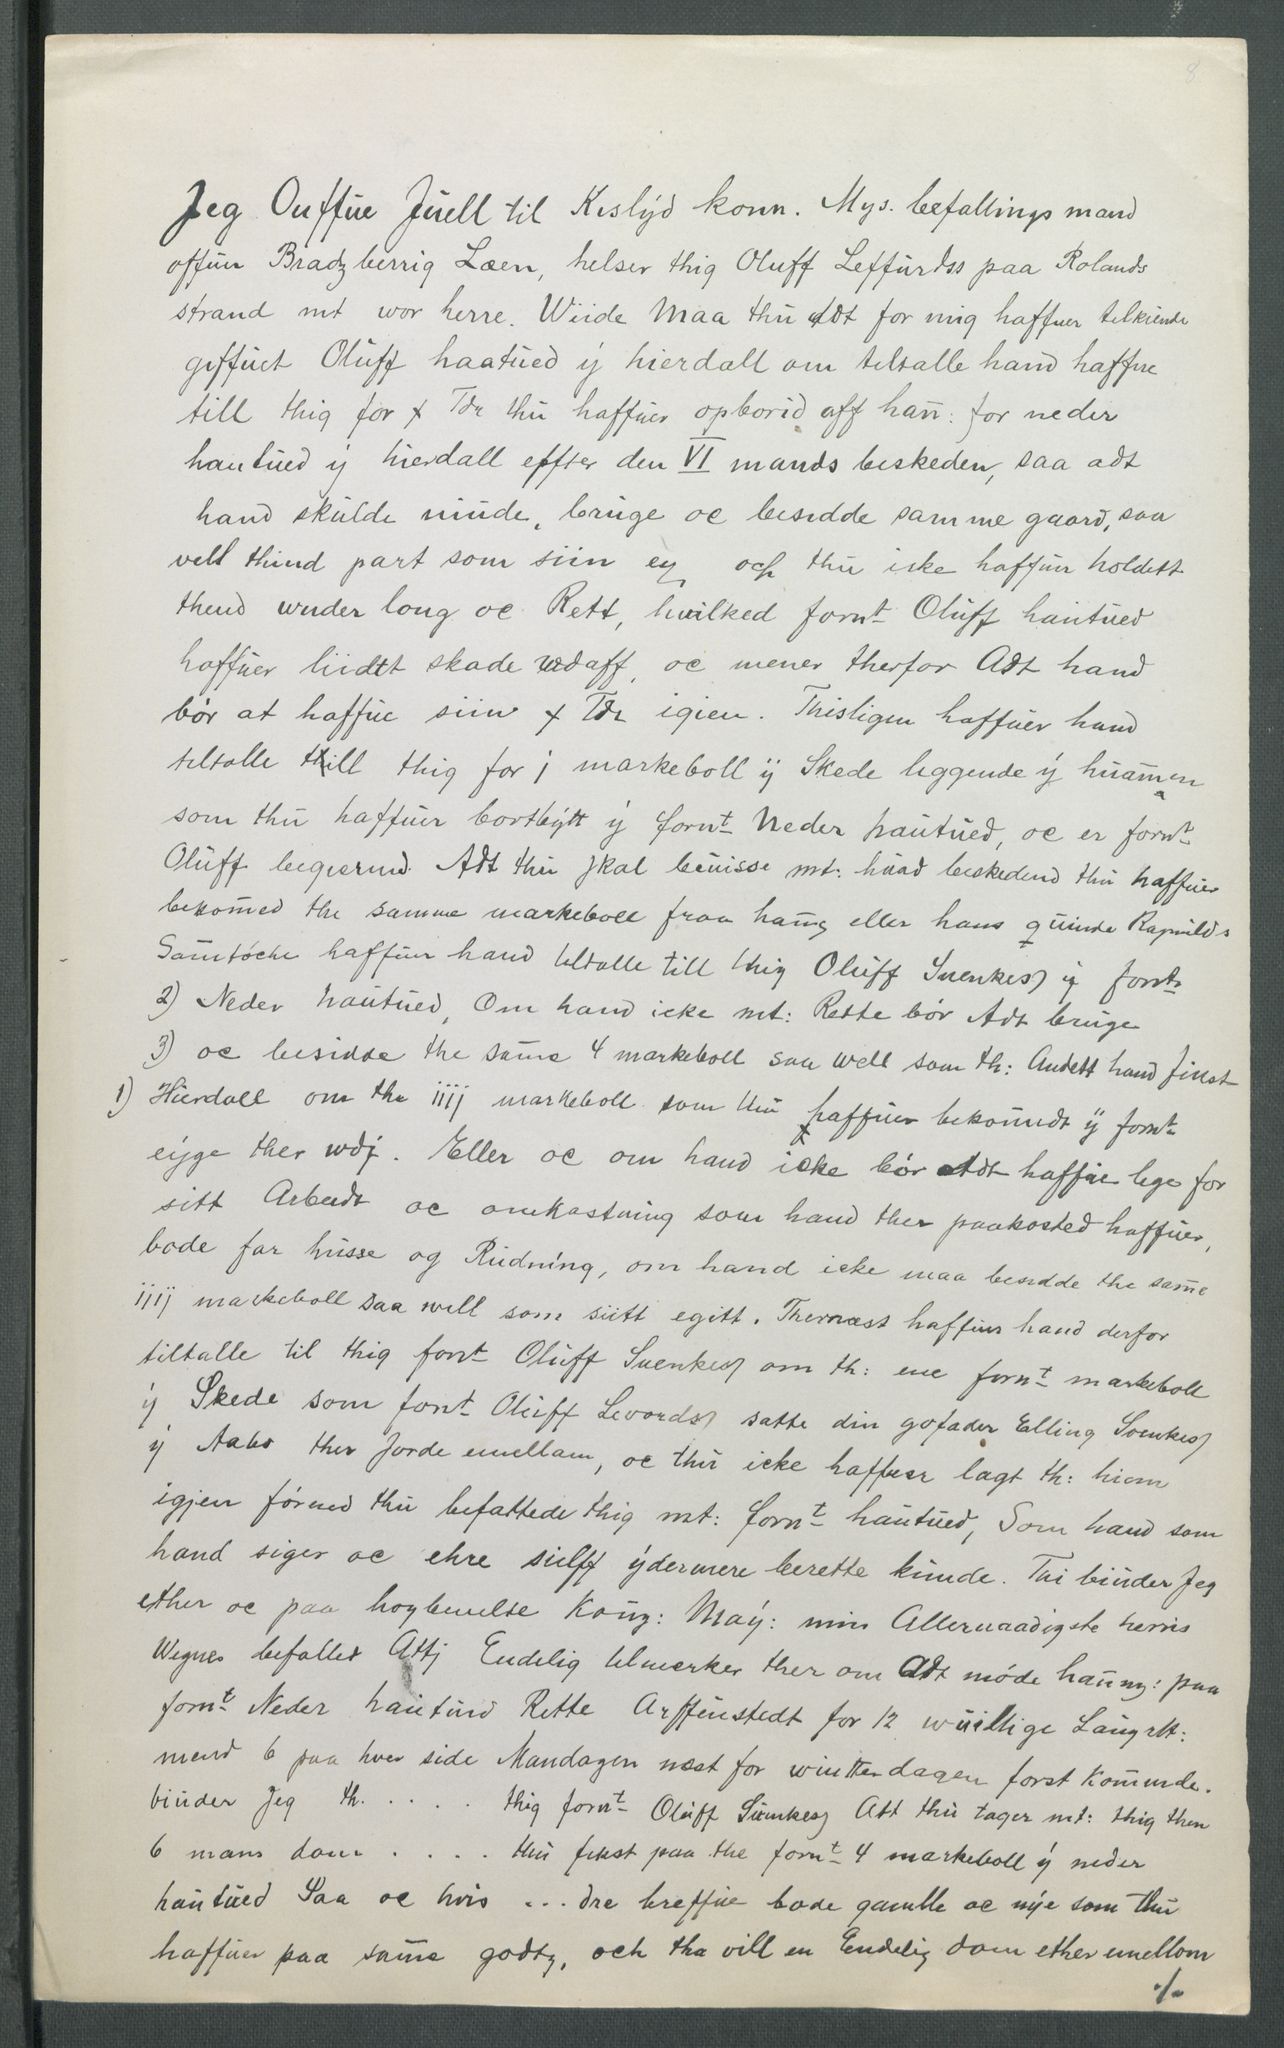 8.
Jeg Ouffue Juell til Keslyd konn. Mys. befallings mand
offuer Bradzberrig Læen, helser thig Oluff Leffurdss paa Rolands
strand mt wor herre. Wiide Maa thu Adt for mig haffuer tilkiende
giffuet Oluff haatued ÿ hierdall om tiltalle hand haffue
till thig for x Tdr thu haffuer opborid aff han: for neder
hautued ÿ hierdall effter den VI mands beskeden, saa adt
hand skulde niude, bruge oc besidde samme gaard, saa
vell thind part som siin eg och thu icke haffuer holdett
thend wnder loug oc Rett, huilked fornt Oluff hautued
haffuer liidet skade udaff, oc mener therfor Adt hand
bør at haffue siin x Tdr igien. Thisligen haffuer hand
tiltalle till thig for j markeboll ÿ Skede liggende ÿ huammen
som thu haffuer bortbytt ÿ fornt Neder hautued, oc er fornt
Oluff begierind Adt thu skal beuisse mt: huad beskedend thu haffuer
bekomed the samme markeboll fraa hanz eller hans quinde Ragnilds
Samtøche haffuer hand tiltalle till thig Oluff Suenkess ÿ fornt
2) Neder hautued, Om hand icke mt: Rette bør Adt bruge
3) oc besidde the same 4 markeboll saa well som th: Andett hand finst
1) Hierdall om the iiij markeboll som thu haffuer bekomidt ÿ fornt
eÿge ther wdj. Eller oc om hand icke bør Adt haffue lege for
sitt Arbeidt oc omkostning som hand ther paakosted haffuer,
bode for husse og Rudning, om hand icke maa besidde the same
iiij markeboll saa well som siitt egitt. Thernæst haffuer hand derfor
tiltalle til thig fornt Oluff Suenkess om th: ene fornt markeboll
ÿ Skede som fornt Oluff Levordss satte din gofader Elling Soenkess
ÿ Aabo ther Jorde emellam, oc thu icke haffuer lagt th: hiem
igjen førned thu befattede thig mt: fornt hautued, Som hand som
hand siger oc ehre sielff ÿdermere berette kunde. Thi biuder Jeg
ether oc paa høybeuelte Konz: Maÿ: min Allernaadigste herris
Wegnes befaller Attj Endelig tilmerker ther om Adt møde hannz: paa
fornt Neder hautued Rette Arffuestedt for 12 wuillige Laugrtt:
mend 6 paa huer side Mandagen næst for winterdagen forst komende.
biuder Jeg th. . . . . thig fornt Oluff Suenkess Att thu tager mt: thig then
6 mans dom . . . . thu finst paa the fornt 4 markeboll ÿ neder
hautued Saa oc hvis ... dre breffue bode gamlle oc nÿe som thu
haffuer paa same godtz, och tha vill en Endelig dom ether emellom
./.